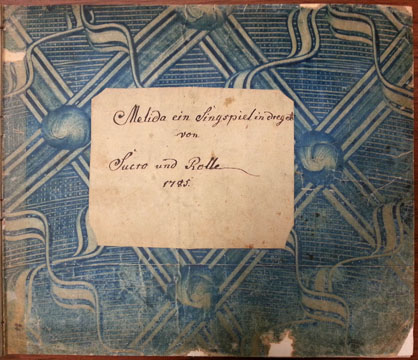 Melida ein Singspiel in drey Akt
von
Sucro und Rolle
1785.